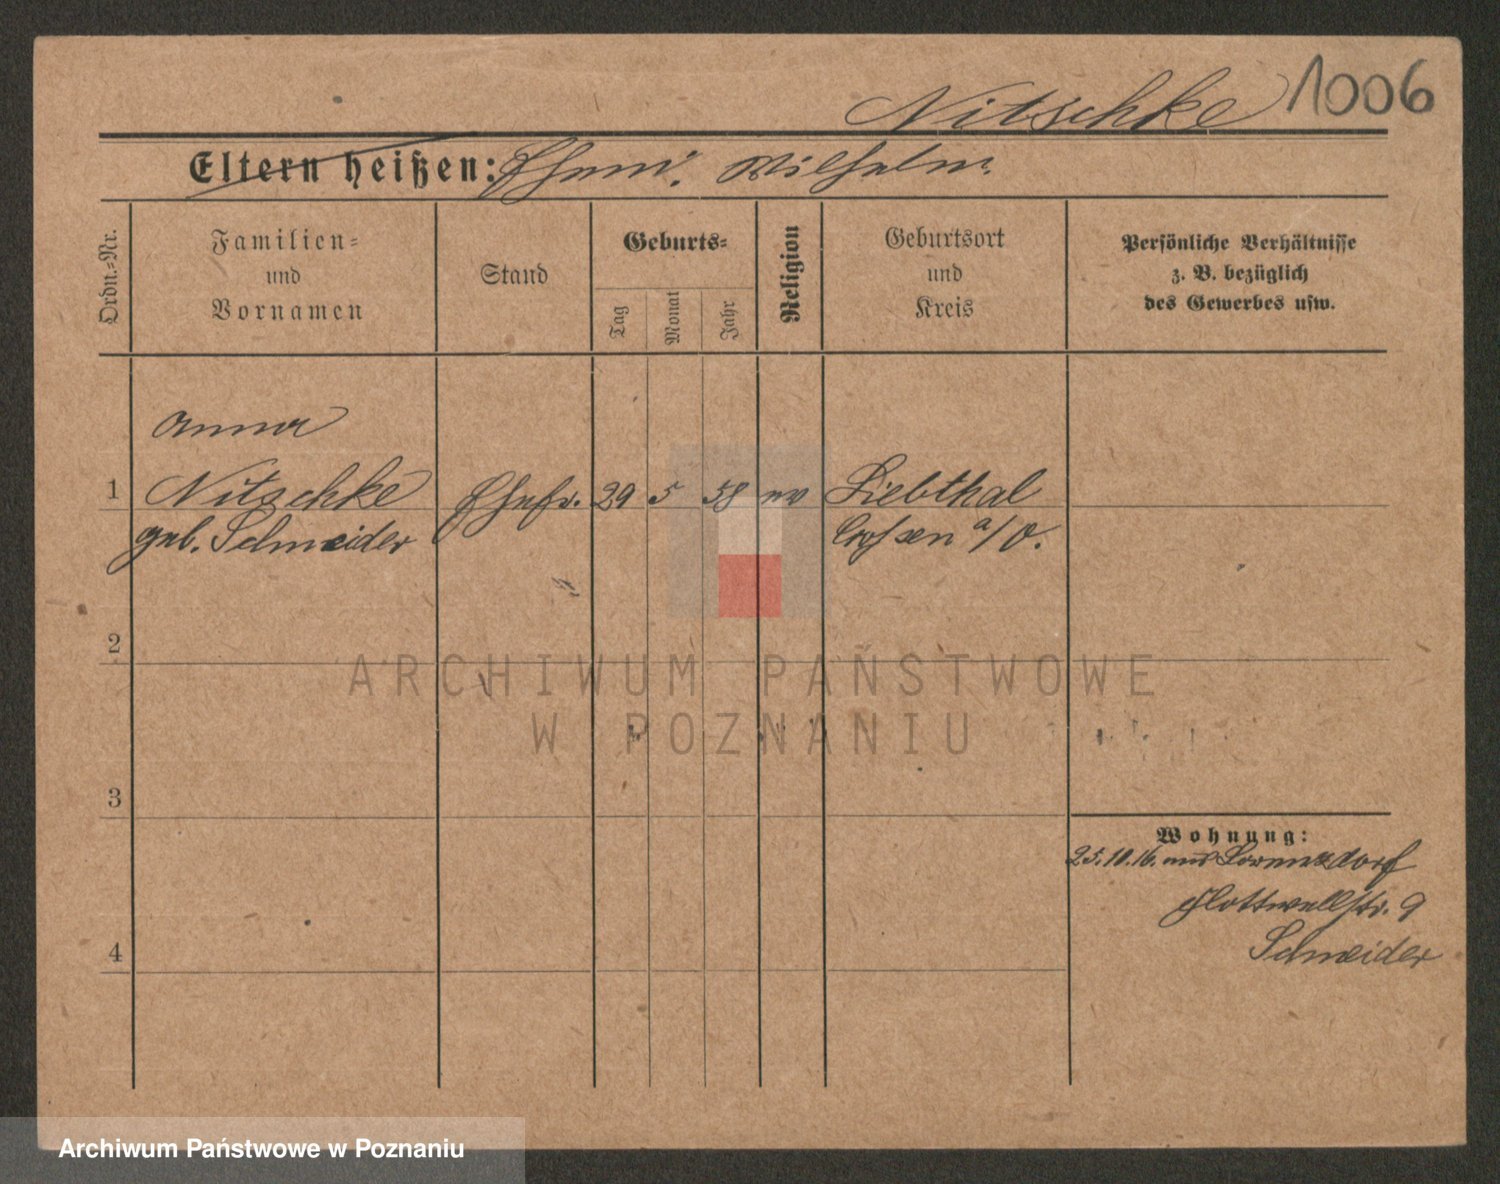 Nitschke 1006
Eltern heißen: Ehem. Wilhelm
Ordn.-Nr.
Familien-
und
Vornamen
Stand
Geburts-
Tag
Monat
Jahr
Religion
Geburtsort
und
Kreis
Persönliche Verhältnisse
z. B. bezüglich
des Gewerbes usw.
Anna
1 Nitschke Ehefr. 29 5 58 ev Liebthal
geb. Schneider Crossen a/O.
2
3
4
Wohnung:
25.10.16. aus Lorenzdorf
Flottwellstr. 9
Schneider
ARCHIWUM PAŃSTWOWE
W POZNANIU
Archiwum Państwowe w Poznaniu